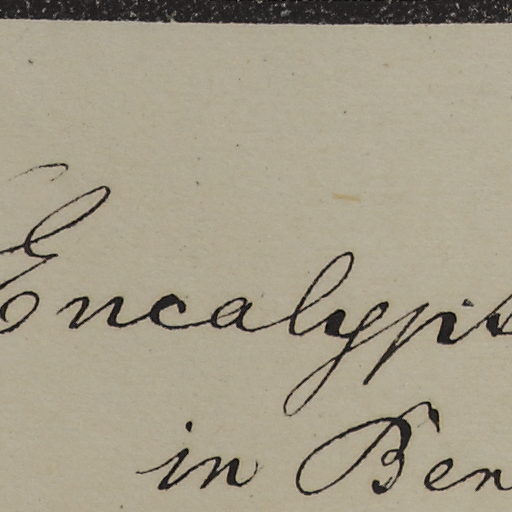 Eucalypt
in Ben